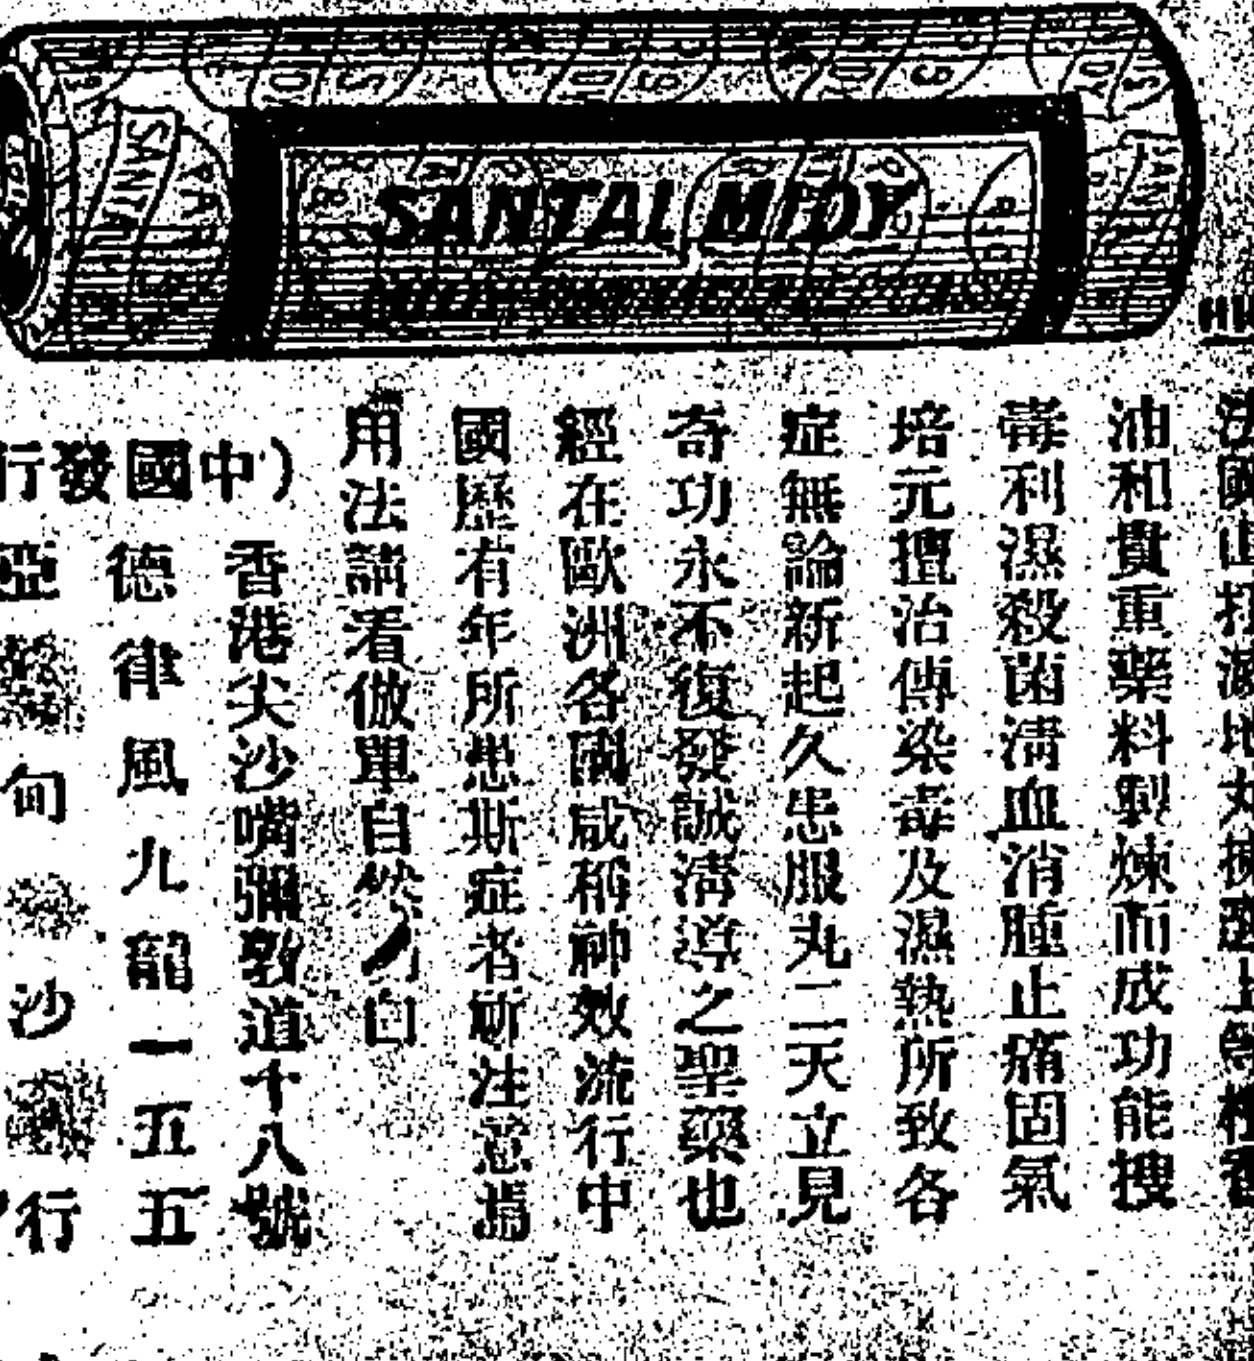 SANTAL MIDY
法國山打滅地丸揀選上等檀香
油和貴重藥料製煉而成功能搜
毒利濕殺菌清血消腫止痛固氣
培元擅治傳染毒及濕熱所致各
症無論新起久患服丸二天立見
奇功永不復發誠淸導之聖藥也
經在歐洲各國咸稱神效流行中
國歷有年所患斯症者祈注意焉
用法請看倣單自然明白
(中國發行
香港尖沙嘴彌敦道十八號
德律風九龍一五五五
亞 甸 沙 行